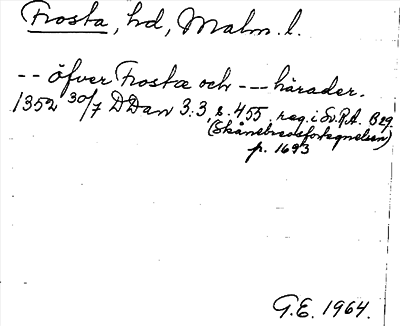 Frosta, hd, Malm. l.
-- öfver Frostæ och --- härader.
1352 30/7 DDan 3:3, s. 455, reg. i Sv.R.A. B 29.
(Skånebrevsförtegnelsen)
p. 1693
G.E. 1964.